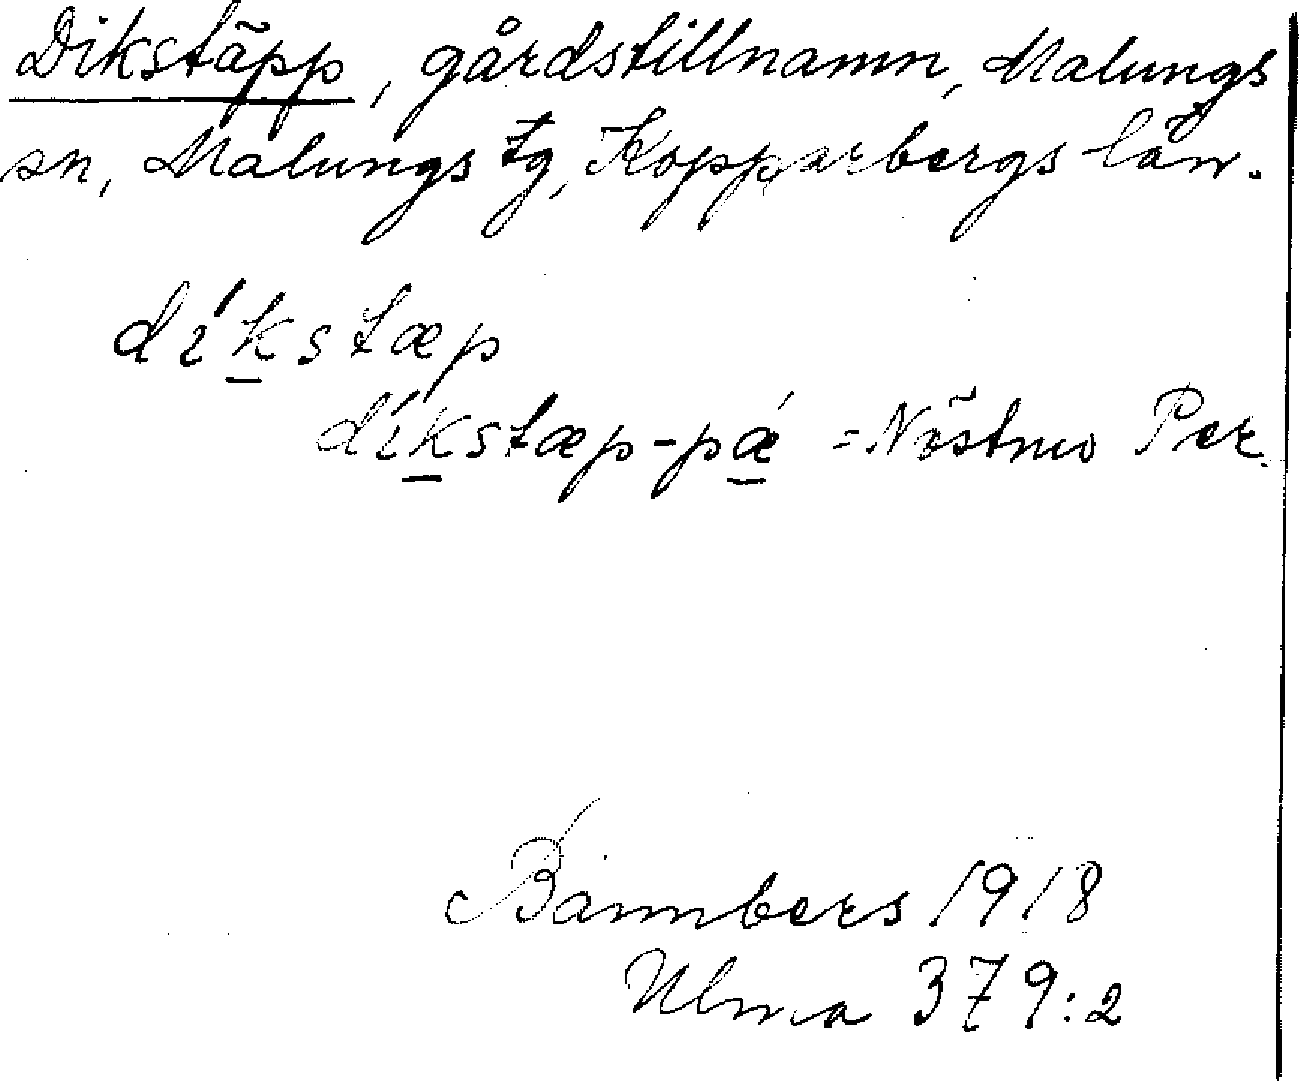 Dikstäpp, gårdstillnamn, Malungs
sn, Malungs tg, Kopparbergs län.
díkstæp
díkstæp-pǽ = Nästmo Per.
Bannbers 1918
Ulma 379:2